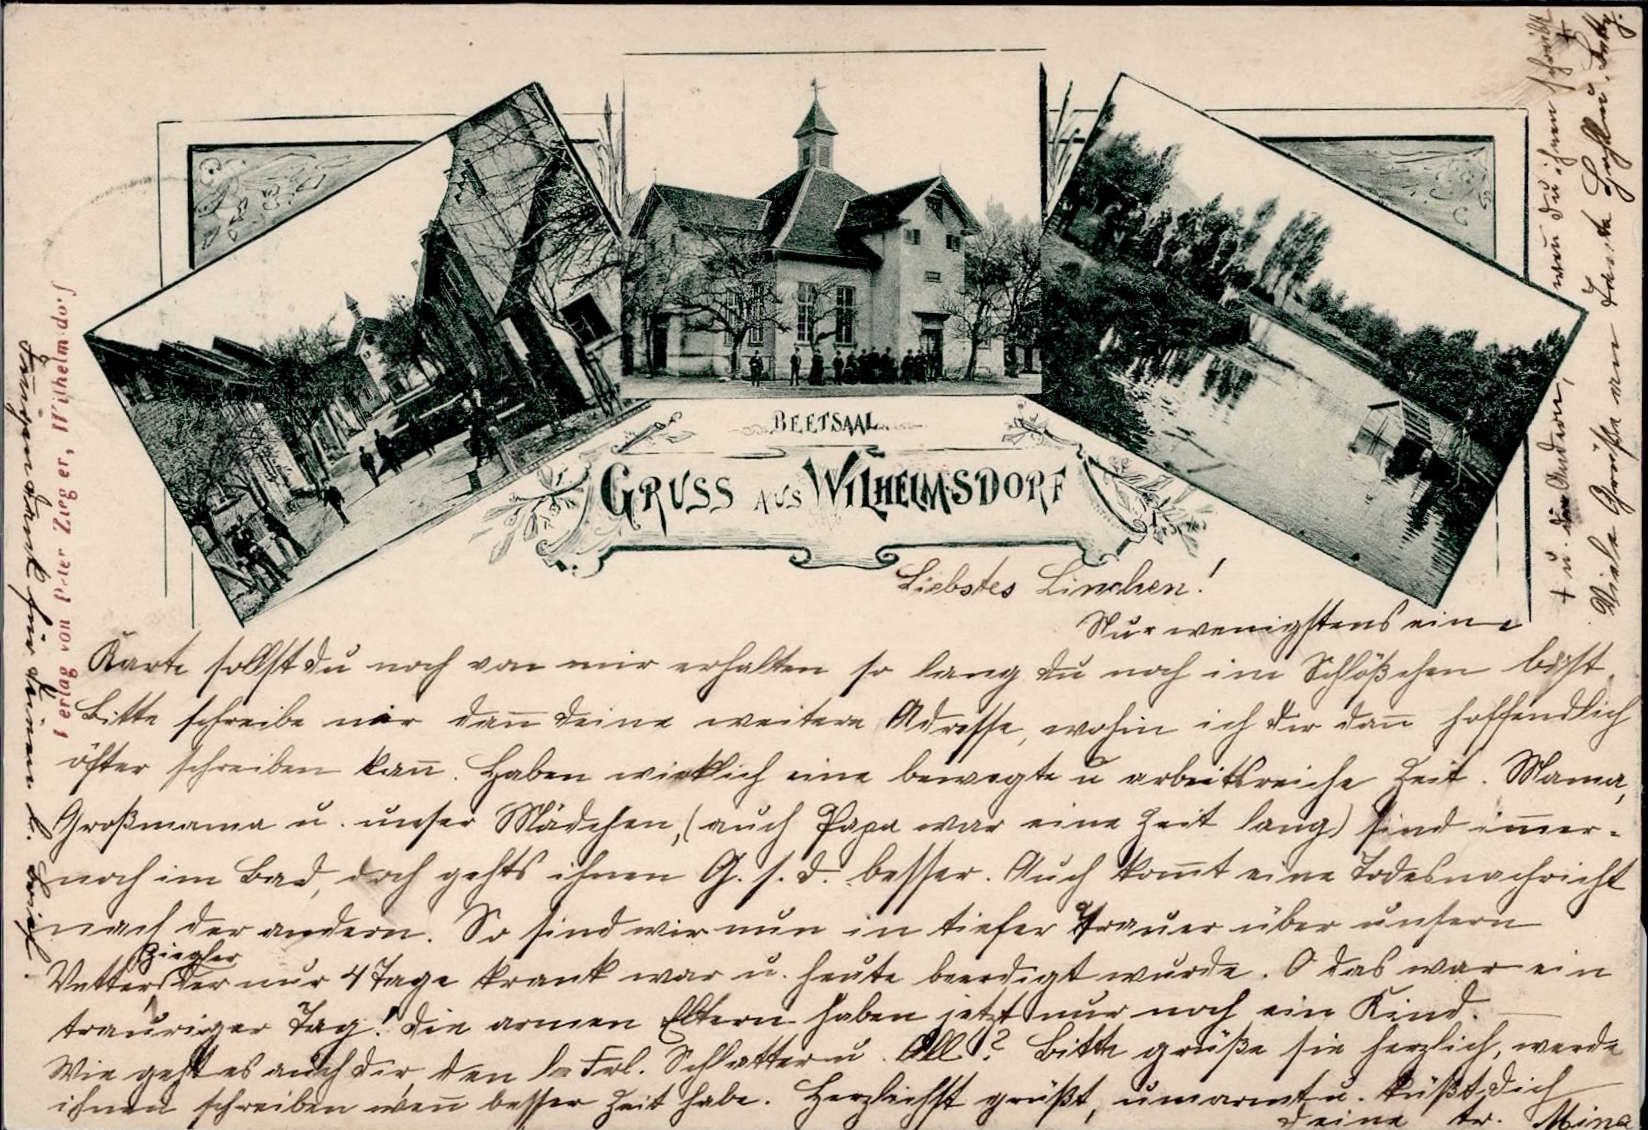 BEETSAAL
GRUSS AUS WILHELMSDORF
Verlag von Peter Ziegler, Wilhelmsdorf
Liebstes Linchen!
Nur wenigstens eine
Karte sollst du noch von mir erhalten so lang du noch im Schlößchen bist.
Bitte schreibe mir dan̄ deine weitere Adresse, wohin ich dir dan̄ hoffendlich
öfter schreiben kan̄. Haben wirklich eine bewegte u. arbeitsreiche Zeit. Mama,
Großmama u. unser Mädchen, (auch Papa war eine Zeit lang) sind im̄er-
noch im Bad, doch gehts ihnen G. s. d. besser. Auch kom̄t eine Todesnachricht
nach der andern. So sind wir nun in tiefer Trauer über unsern
Vetter Ziegler der nur 4 Tage krank war u. heute beerdigt wurde. O das war ein
trauriger Tag! Die armen Eltern haben jetzt nur noch ein Kind.
Wie geht es auch dir, den l. Frl. Schlatter u. All? Bitte grüße sie herzlich, werde
ihnen schreiben wen̄ besser Zeit habe. Herzlichst grüßt, umarmt u. küßt dich
deine tr. Mina
Innigen Dank für deinen l. Brief.
+ u. die Andern, wen̄ du ihnen schreibst +
Viele Grüße an Tante